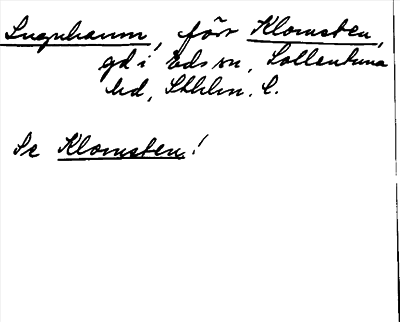 Lugnhamn, förr Klomsten,
gd i Eds sn, Sollentuna
hd, Sthlm. l.
Se Klomsten!